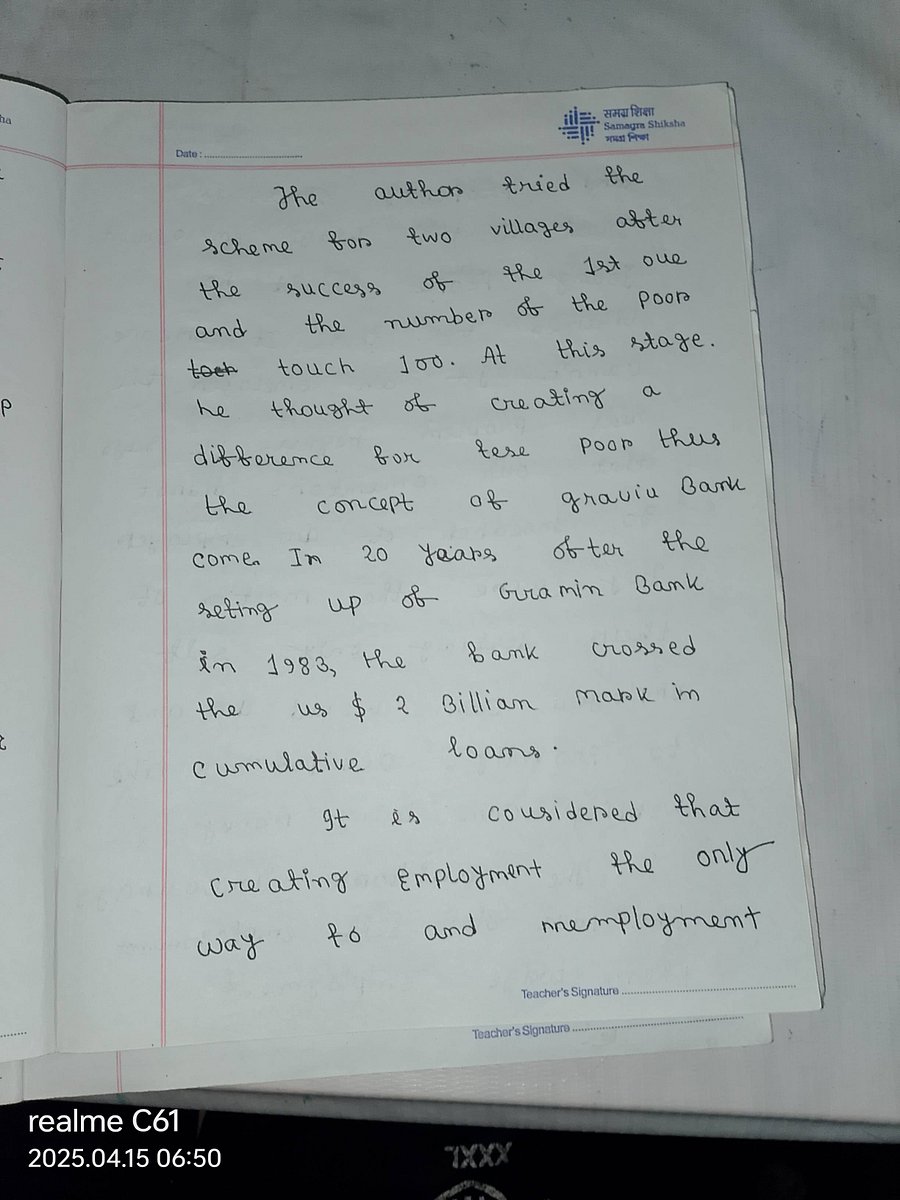 समग्र शिक्षा
Samagra Shiksha
Date :
The author tried the
scheme for two villages after
the success of the 1st one
and the number of the poor
touch 100. At this stage.
he thought of creating a
difference for tese poor thus
the concept of graviu Bank
come. In 20 years ofter the
seting up of Gramin Bank
in 1983, the bank crossed
the us $ 2 Billian mark in
cumulative loans.
It is considered that
creating Employment the only
way to and nnemployment
Teacher's Signature
Teacher's Signature
realme C61
2025.04.15 06:50